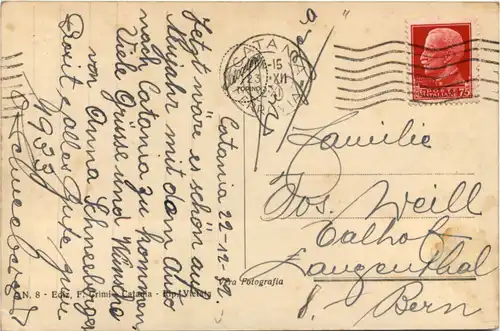 Catania 22-12-32.
Jetzt wäre es schön auf
Neujahr mit dem Auto
nach Catania zu kommen
Viele Grüsse und Wünsche
von Anna Schneeberger
Best. alles Gute zum
1933
Schneeberger
CATANIA
23 XII
POSTE ITALIANE
75
Familie
Jos. Weill
Talhof
Langenthal
Bern
Vera Fotografia
N. 8 - Ediz. F. Grimi - Catania - Rip. Vietata